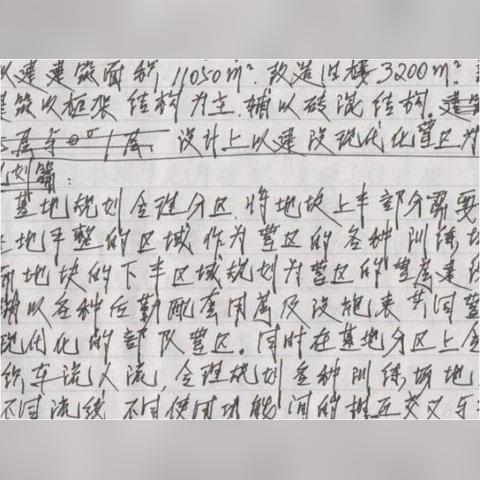 以建建筑面积11050m².改造旧楼3200m².
建筑以框架结构为主,辅以砖混结构.建筑
设计上以建设现代化营区为
规划篇:
基地规划合理分区.将地块上半部分需要
土地平整的区域作为营区的各种训练场
而地块的下半区域规划为营区的营房建设
辅以各种后勤配套用房及设施来共同营
现代化的部队营区.同时在基地分区上合
织车流人流,合理规划各种训练场地
不同流线,不同使用功能间的相互交叉与